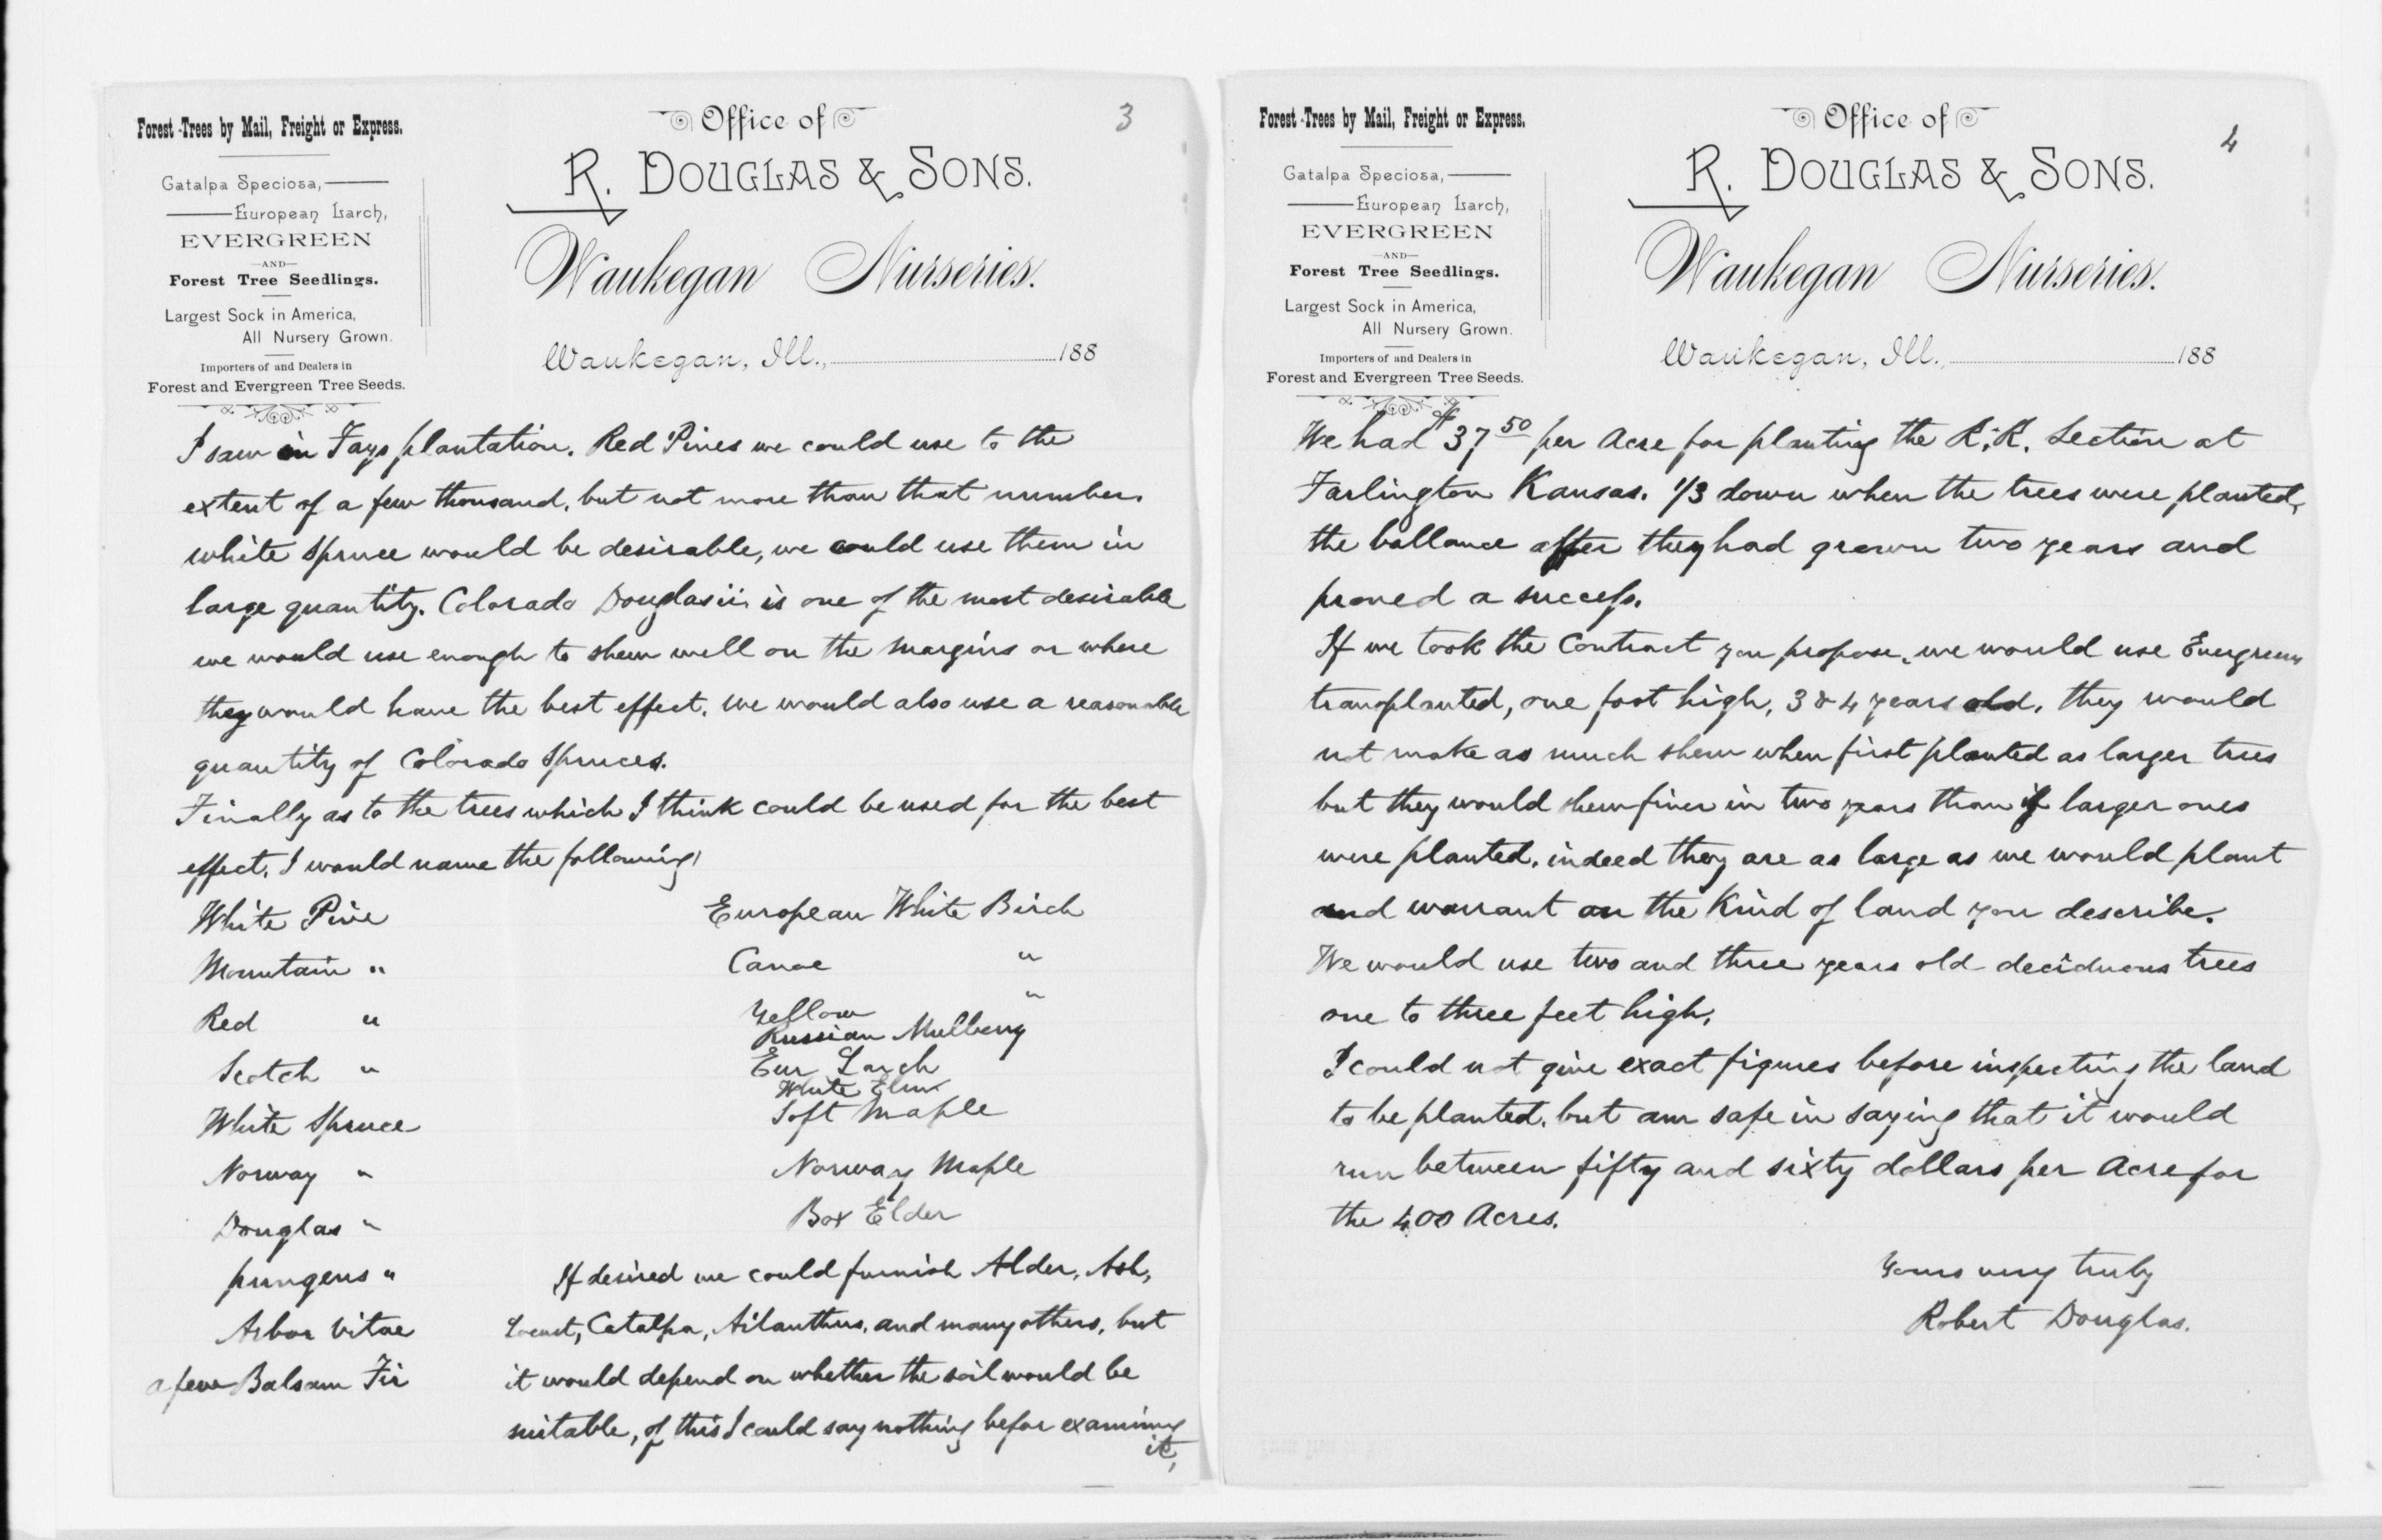 Forest Trees by Mail, Freight or Express.
Catalpa Speciosa,
European Larch,
EVERGREEN
—AND—
Forest Tree Seedlings.
Largest Sock in America,
All Nursery Grown.
Importers of and Dealers in
Forest and Evergreen Tree Seeds.
Office of
R. DOUGLAS & SONS.
Waukegan Nurseries.
Waukegan, Ill., 188
3
I saw in Fays plantation. Red Pines we could use to the
extent of a few thousand, but not more than that number.
white Spruce would be desirable, we could use them in
large quantity. Colorado Douglasii is one of the most desirable
we would use enough to shew well on the margins or where
they would have the best effect. we would also use a reasonable
quantity of Colorado Spruces.
Finally as to the trees which I think could be used for the best
effect, I would name the following
White Pine
Mountain "
Red "
Scotch "
White Spruce
Norway "
Douglas "
pungens "
Arbor Vitae
a few Balsam Fir
European White Birch
Canoe "
Yellow "
Russian Mulberry
Eur Larch
White Elm
Soft Maple
Norway Maple
Box Elder
If desired we could furnish Alder, Ash,
Locust, Catalpa, Ailanthus, and many others, but
it would depend on whether the soil would be
suitable, of this I could say nothing befor examining
it,
Forest Trees by Mail, Freight or Express.
Catalpa Speciosa,
European Larch,
EVERGREEN
—AND—
Forest Tree Seedlings.
Largest Sock in America,
All Nursery Grown.
Importers of and Dealers in
Forest and Evergreen Tree Seeds.
Office of
R. DOUGLAS & SONS.
Waukegan Nurseries.
Waukegan, Ill., 188
4
We had $37 50 per Acre for planting the R.R. Section at
Farlington Kansas. 1/3 down when the trees were planted,
the ballance after they had grown two years and
proved a success.
If we took the Contract you propose, we would use Evergreens
transplanted, one foot high, 3 & 4 years old. they would
not make as much shew when first planted as larger trees
but they would shew finer in two years than if larger ones
were planted, indeed they are as large as we would plant
and warrant on the Kind of land you describe.
We would use two and three years old deciduous trees
one to three feet high.
I could not give exact figures before inspecting the land
to be planted, but am safe in saying that it would
run between fifty and sixty dollars per Acre for
the 400 Acres.
Yours very truly
Robert Douglas.